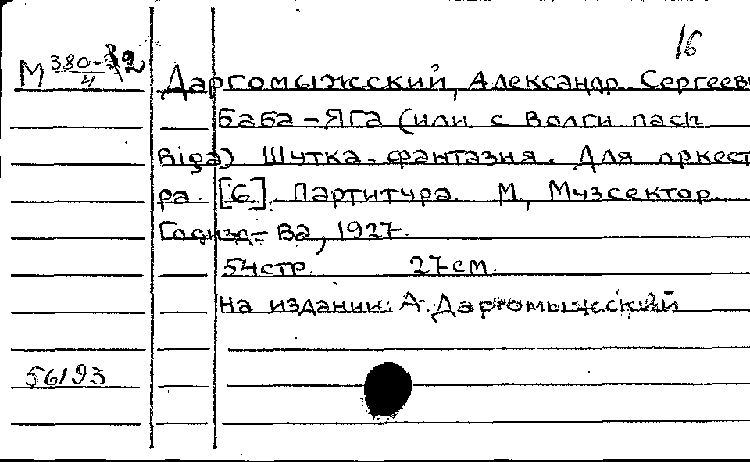 16
М 380-32/4
Даргомыжский, Александр Сергееви
Баба-Яга (или с Волги nach
Riga) Шутка-фантазия. Для оркест
ра. [G]. Партитура. М., Музсектор
Госизд-ва, 1927.
54 стр. 27 см.
На издании: А. Даргомыжский
56193